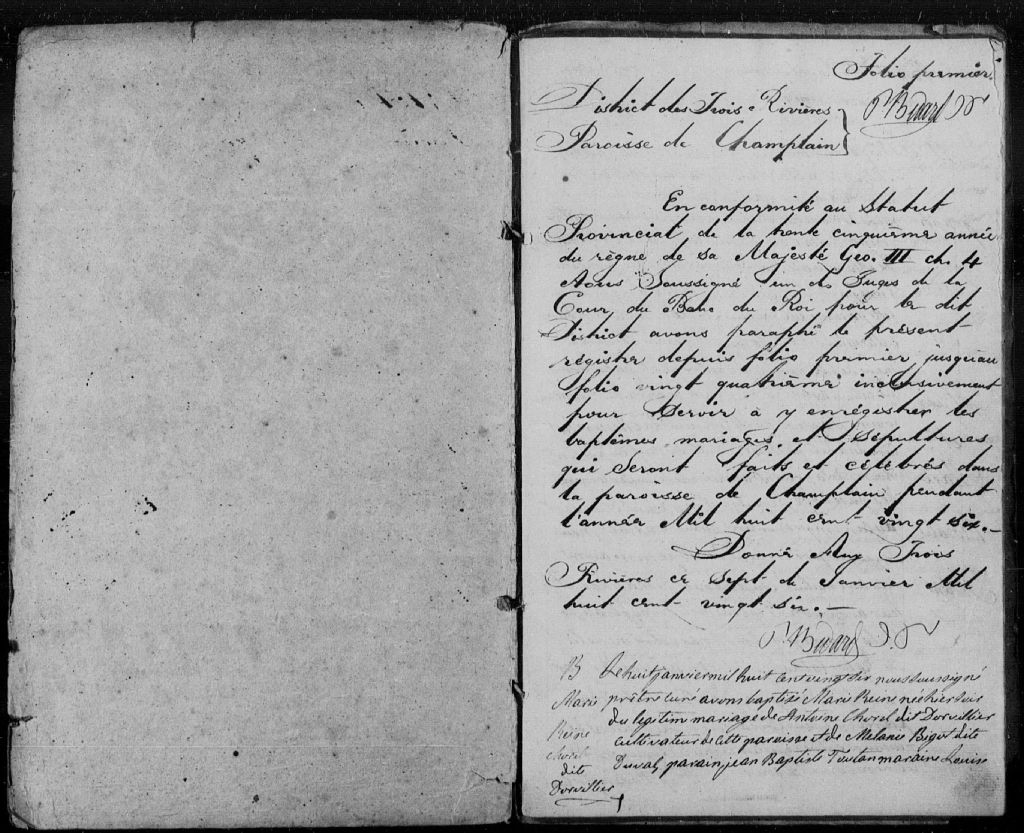 Folio premier.
P Bédard J.
District des Trois-Rivières
Paroisse de Champlain
En conformité au Statut
Provincial de la trente cinquième année
du règne de sa Majesté Geo. III ch. 4
Nous Soussigné un des Juges de la
Cour du Banc du Roi pour le dit
District avons paraphé le présent
régistre depuis folio premier jusqu'au
folio vingt quatrième inclusivement
pour servir à y enrégistrer les
baptêmes, mariages et sépultures
qui seront faits et célébrés dans
la paroisse de Champlain pendant
l'année Mil huit cent vingt six.-
Donné Aux Trois
Rivières ce sept de Janvier Mil
huit cent vingt six.-
P. Bédard J.
B
Marie
Reine
Chorel
dit
Dorvillier
Le huit janvier mil huit cent vingt six nous soussigné
prêtre curé avons baptisé Marie Reine née hier soir
du legitime mariage de Antoine Chorel dit Dorvillier
cultivateur de cette paroisse et de Melanie Bigot dite
Duval, parain, jean Baptiste Toutan maraine Louise